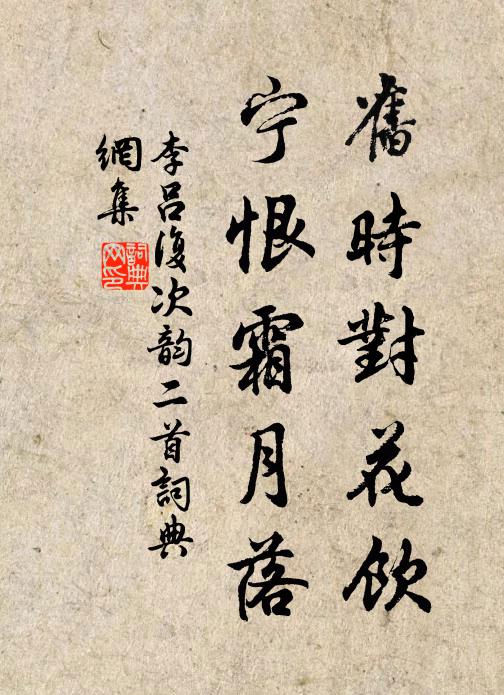 舊時對花飲
宁恨霜月落
李呂復次韵二首詞典
網集
詞典网印